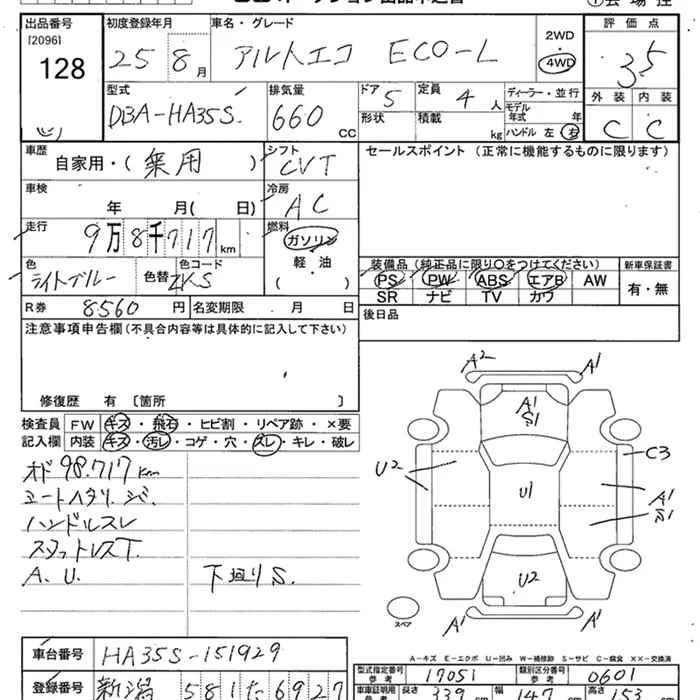 出品番号
[2096]
128
初度登録年月
25 8月
車名・グレード
アルトエコ ECO-L
2WD
4WD
評価点
3.5
外装 内装
C C
型式
DBA-HA35S
排気量
660 CC
ドア
5
形状
定員
4人
積載
kg
ディーラー・並行
モデル年式 年
ハンドル 左 右
車歴
自家用・(乗用)
シフト
CVT
セールスポイント(正常に機能するものに限ります)
車検
年 月(日)
冷房
AC
走行
9万8千717km
燃料
ガソリン
軽・油
( )
色
ライトブルー
色替
色コード
ZKS
装備品(純正品に限り○をつけてください)
PS PW ABS エアB AW
SR ナビ TV カワ
新車保証書
有・無
R券 8560円
名変期限 月 日
後日品
注意事項申告欄(不具合内容等は具体的に記入して下さい)
修復歴 有〔箇所 〕
検査員記入欄
FW キズ・飛石・ヒビ割・リペア跡・×要
内装 キズ・汚レ・コゲ・穴・スレ・キレ・破レ
オド98.717km
ハンドルスレ
スタットレスT.
A.U. 下廻りS.
A2 A1
A1
S1
U2 C3
U1
A1
S1
U2
A1 A1
スペア
A-キズ E-エクボ U-凹み W-補修跡 S-サビ C-腐食 ××-交換済
車台番号 HA35S-151929
型式指定番号 参考 17051
類別区分番号 参考 0601
登録番号 新潟 581 た 6927
車車証明用 参考 長さ 339 幅 147 高さ